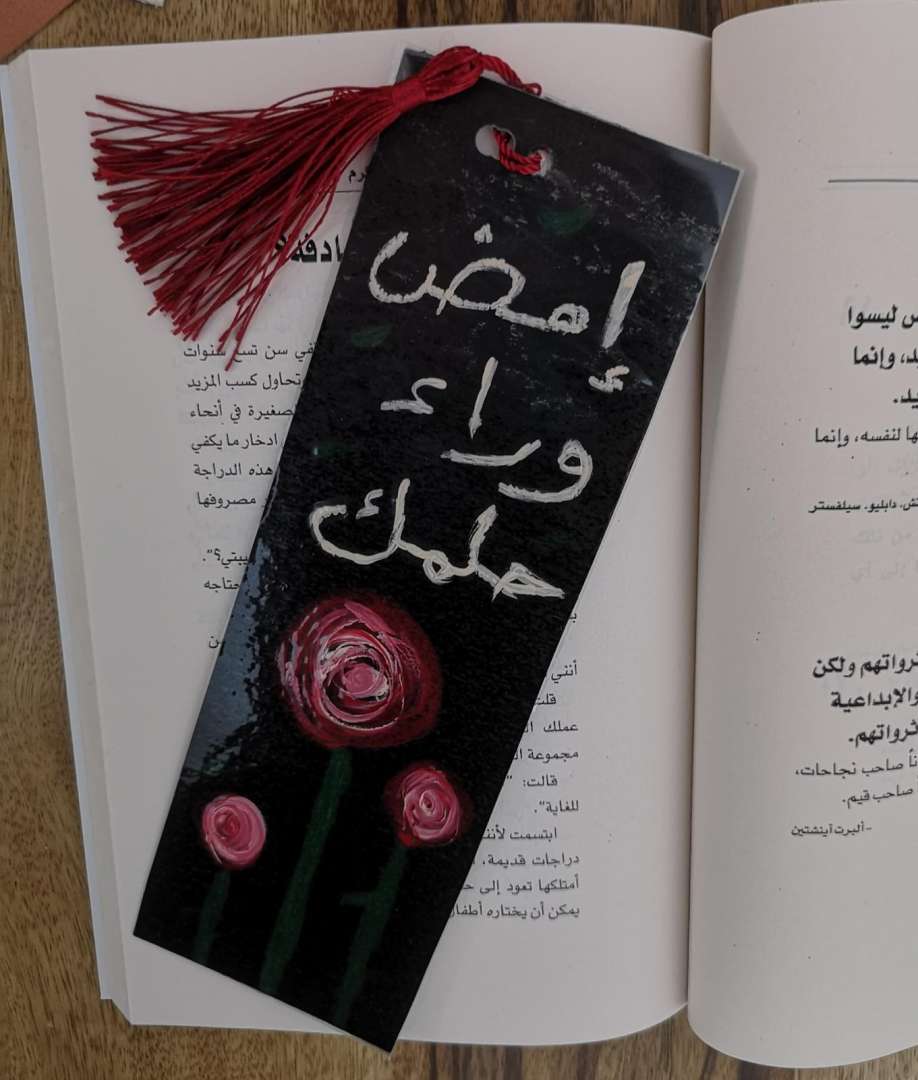 إمض
وراء
حلمك
في سن تسع سنوات
وتحاول كسب المزيد
الصغيرة في أنحاء
ادخار ما يكفي
هذه الدراجة
مصروفها
أنني
عملك
مجموعة
قالت: "
للغاية".
ابتسمت لأنني
دراجات قديمة،
أمتلكها تعود إلى
يمكن أن يختاره أطفال
ليسوا
وإنما
لنفسه، وإنما
دابليو. سيلفستر
ثرواتهم ولكن
والإبداعية
ثرواتهم.
صاحب نجاحات،
صاحب قيم.
-ألبرت آينشتين